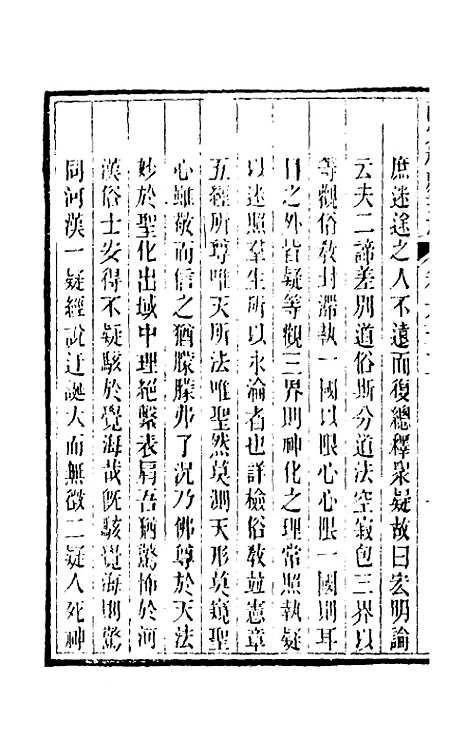 庶迷途之人不遠而復總釋衆疑故曰宏明論
云夫二諦差別道俗斯分道法空寂包三界以
等觀俗敎封滯執一國以限心心限一國則耳
目之外皆疑等觀三界則神化之理常照執疑
以迷照羣生所以永淪者也詳檢俗敎並憲章
五經所尊唯天所法唯聖然莫測天形莫窺聖
心雖敬而信之猶矇矇弗了況乃佛尊於天法
妙於聖化出域中理絕繫表肩吾猶驚怖於河
漢俗士安得不疑駭於覺海哉旣駭覺海則驚
同河漢一疑經說迂誕大而無徵二疑人死神